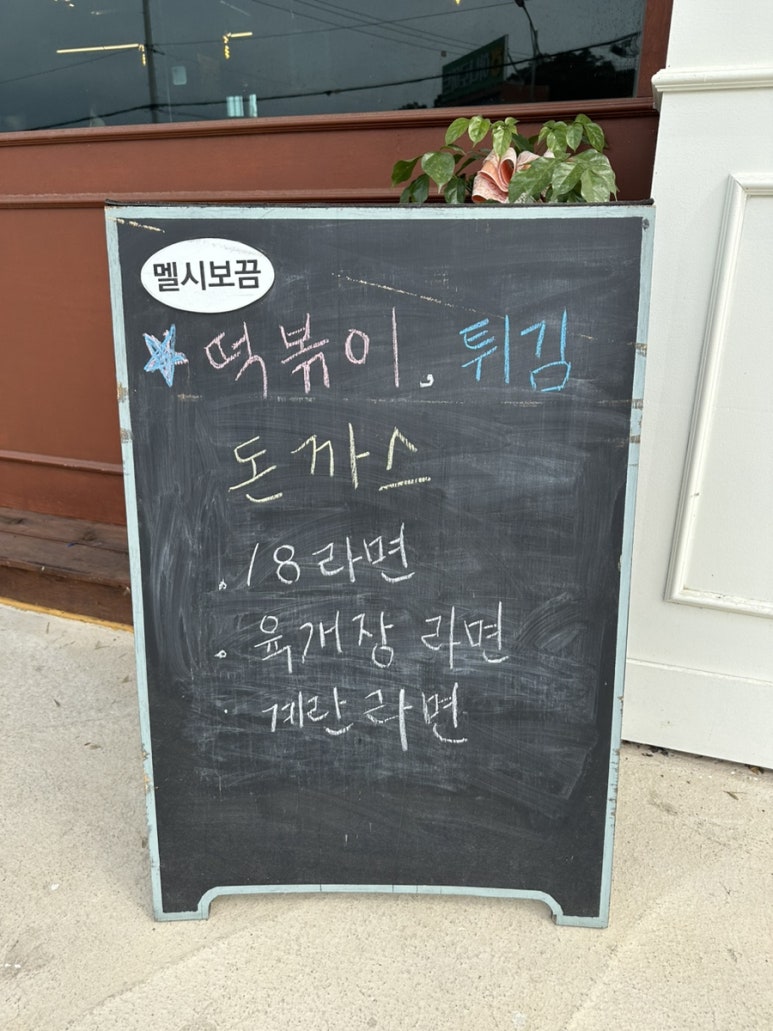 멜시보끔
떡볶이, 튀김
돈까스
. 18라면
. 육개장 라면
· 계란라면